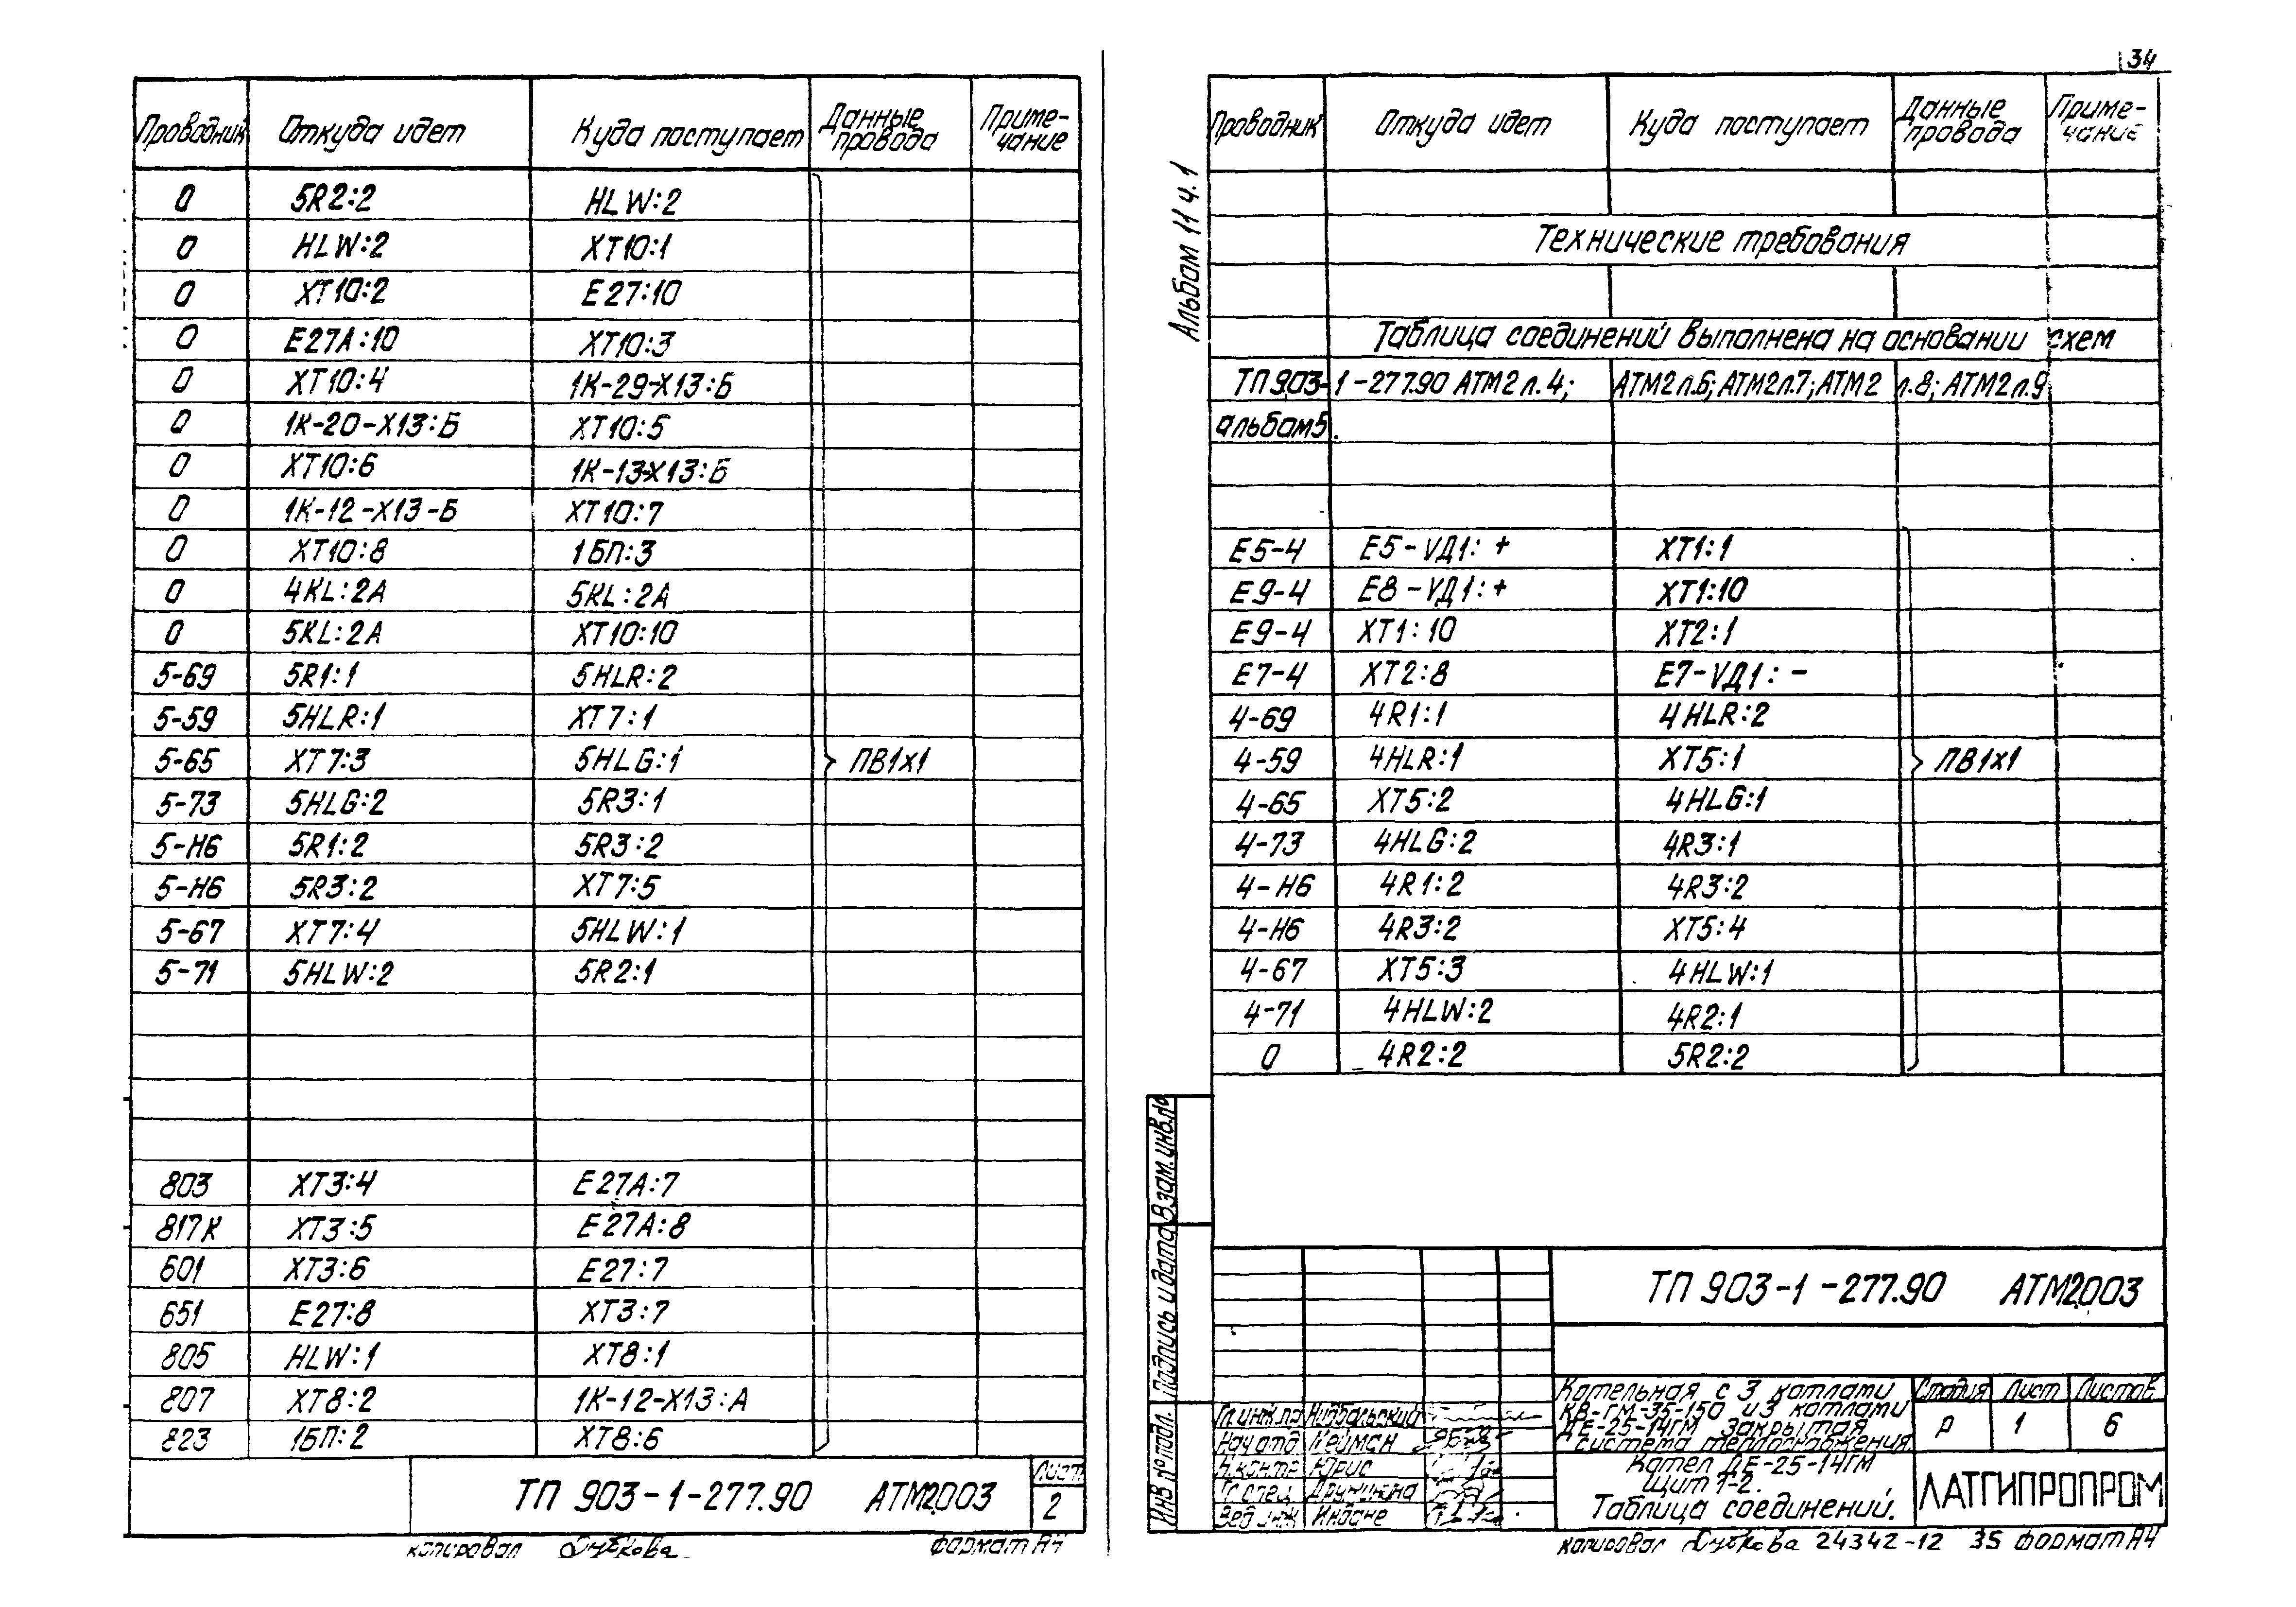 Проводник Откуда идет Куда поступает Данные провода Приме-чание
0 5R2:2 HLW:2
0 HLW:2 XT10:1
0 XT10:2 E27:10
0 E27A:10 XT10:3
0 XT10:4 1К-29-Х13:Б
0 1К-20-Х13:Б XT10:5
0 XT10:6 1К-13-Х13:Б
0 1К-12-Х13-Б XT10:7
0 XT10:8 1БП:3
0 4KL:2A 5KL:2A
0 5KL:2A XT10:10
5-69 5R1:1 5HLR:2
5-59 5HLR:1 XT7:1
5-65 XT7:3 5HLG:1 ПВ1х1
5-73 5HLG:2 5R3:1
5-Н6 5R1:2 5R3:2
5-Н6 5R3:2 XT7:5
5-67 XT7:4 5HLW:1
5-71 5HLW:2 5R2:1
803 XT3:4 E27A:7
817К XT3:5 E27A:8
601 XT3:6 E27:7
651 E27:8 XT3:7
805 HLW:1 XT8:1
807 XT8:2 1К-12-Х13:А
823 1БП:2 XT8:6
ТП 903-1-277.90 АТМ2.003
Лист
2
копировал Дубкова формат А4
34
Альбом 11 ч.1
Проводник Откуда идет Куда поступает Данные провода Приме-чание
Технические требования
Таблица соединений выполнена на основании схем
ТП 903-1-277.90 АТМ2 л.4; АТМ2 л.6; АТМ2 л.7; АТМ2 л.8; АТМ2 л.9
альбом5.
E5-4 E5-VД1:+ XT1:1
E9-4 E8-VД1:+ XT1:10
E9-4 XT1:10 XT2:1
E7-4 XT2:8 E7-VД1:-
4-69 4R1:1 4HLR:2
4-59 4HLR:1 XT5:1 ПВ1х1
4-65 XT5:2 4HLG:1
4-73 4HLG:2 4R3:1
4-Н6 4R1:2 4R3:2
4-Н6 4R3:2 XT5:4
4-67 XT5:3 4HLW:1
4-71 4HLW:2 4R2:1
0 4R2:2 5R2:2
Инв № подл. Подпись и дата Взам. инв. №
ТП 903-1-277.90 АТМ2.003
Котельная с 3 котлами
КВ-ГМ-35-150 и 3 котлами
ДЕ-25-14ГМ Закрытая
система теплоснабжения
Стадия Лист Листов
Р 1 6
Гл.инж.пр
Нач.отд. Нейман
Н.контр Юрис
Гл.спец. Дружинина
Вед.инж Индане
Котел ДЕ-25-14ГМ
Щит 1-2.
Таблица соединений.
ЛАТГИПРОПРОМ
копировал Дубкова 24342-12 35 формат А4